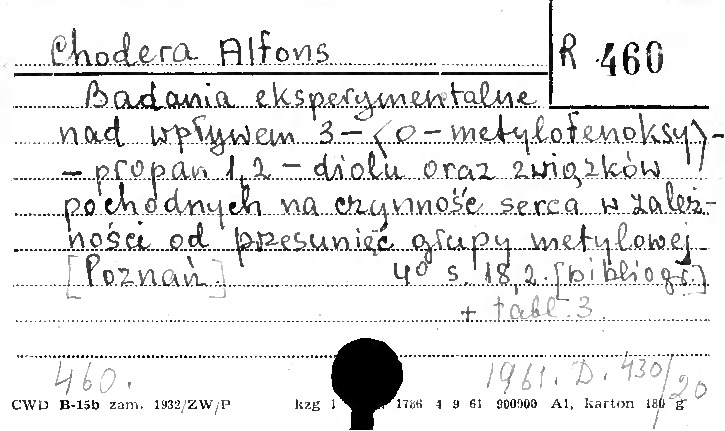 Chodera Alfons
R 460
Badania eksperymentalne
nad wpływem 3-(o-metylofenoksy)-
-propan 1,2-diolu oraz związków
pochodnych na czynność serca w zależ-
ności od przesunięć grupy metylowej
[Poznań] 4° s. 18,2. [bibliogr.]
+ tabl. 3.
460. 1961. D. 430/20
CWD B-15b zam. 1932/ZW/P kzg 1 1786 4 9 61 900900 A1, karton 180 g